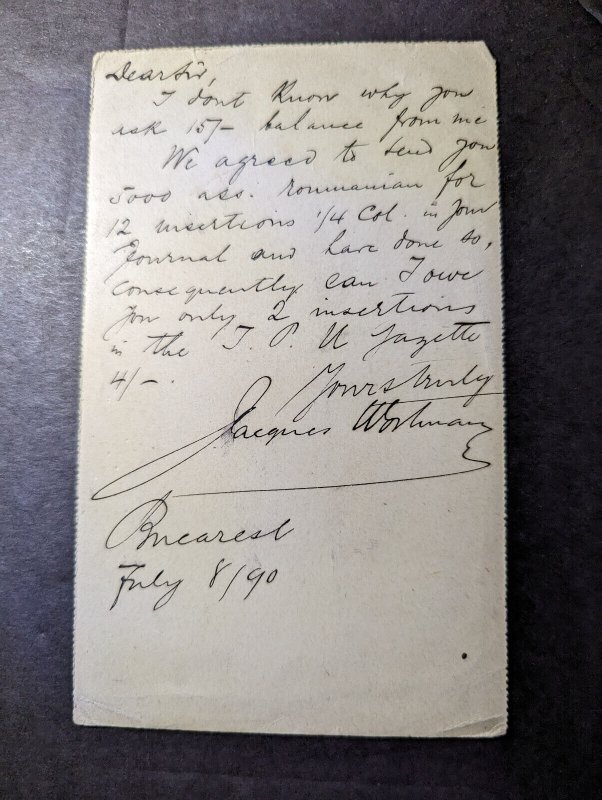 Dear Sir,
I dont Know why you
ask 15/- balance from me
We agreed to send you
5000 ass. roumanian for
12 insertions 1/4 Col. in your
Journal and have done so,
consequently can I owe
you only 2 insertions
in the T. P. U Gazette
4/-.
Yours truly
Jacques
Bucarest
July 8/90